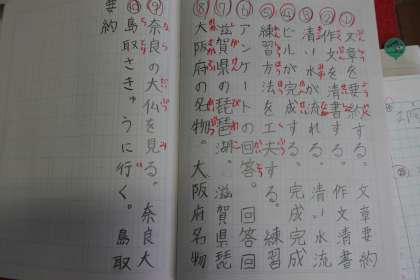 ①文章を要約する。 文章要約
②作文を清書する。 作文清書
③清い水が流れる。 清い水流
④ビルが完成する。 完成
⑤練習方法を工夫する。 練習
⑥アンケートの回答。 回答
⑦滋賀県の琵琶湖。 滋賀県琵
⑧大阪府の名物。大阪府名物
⑨奈良の大仏を見る。 奈良大
⑩鳥取さきゅうに行く。 鳥取
要約